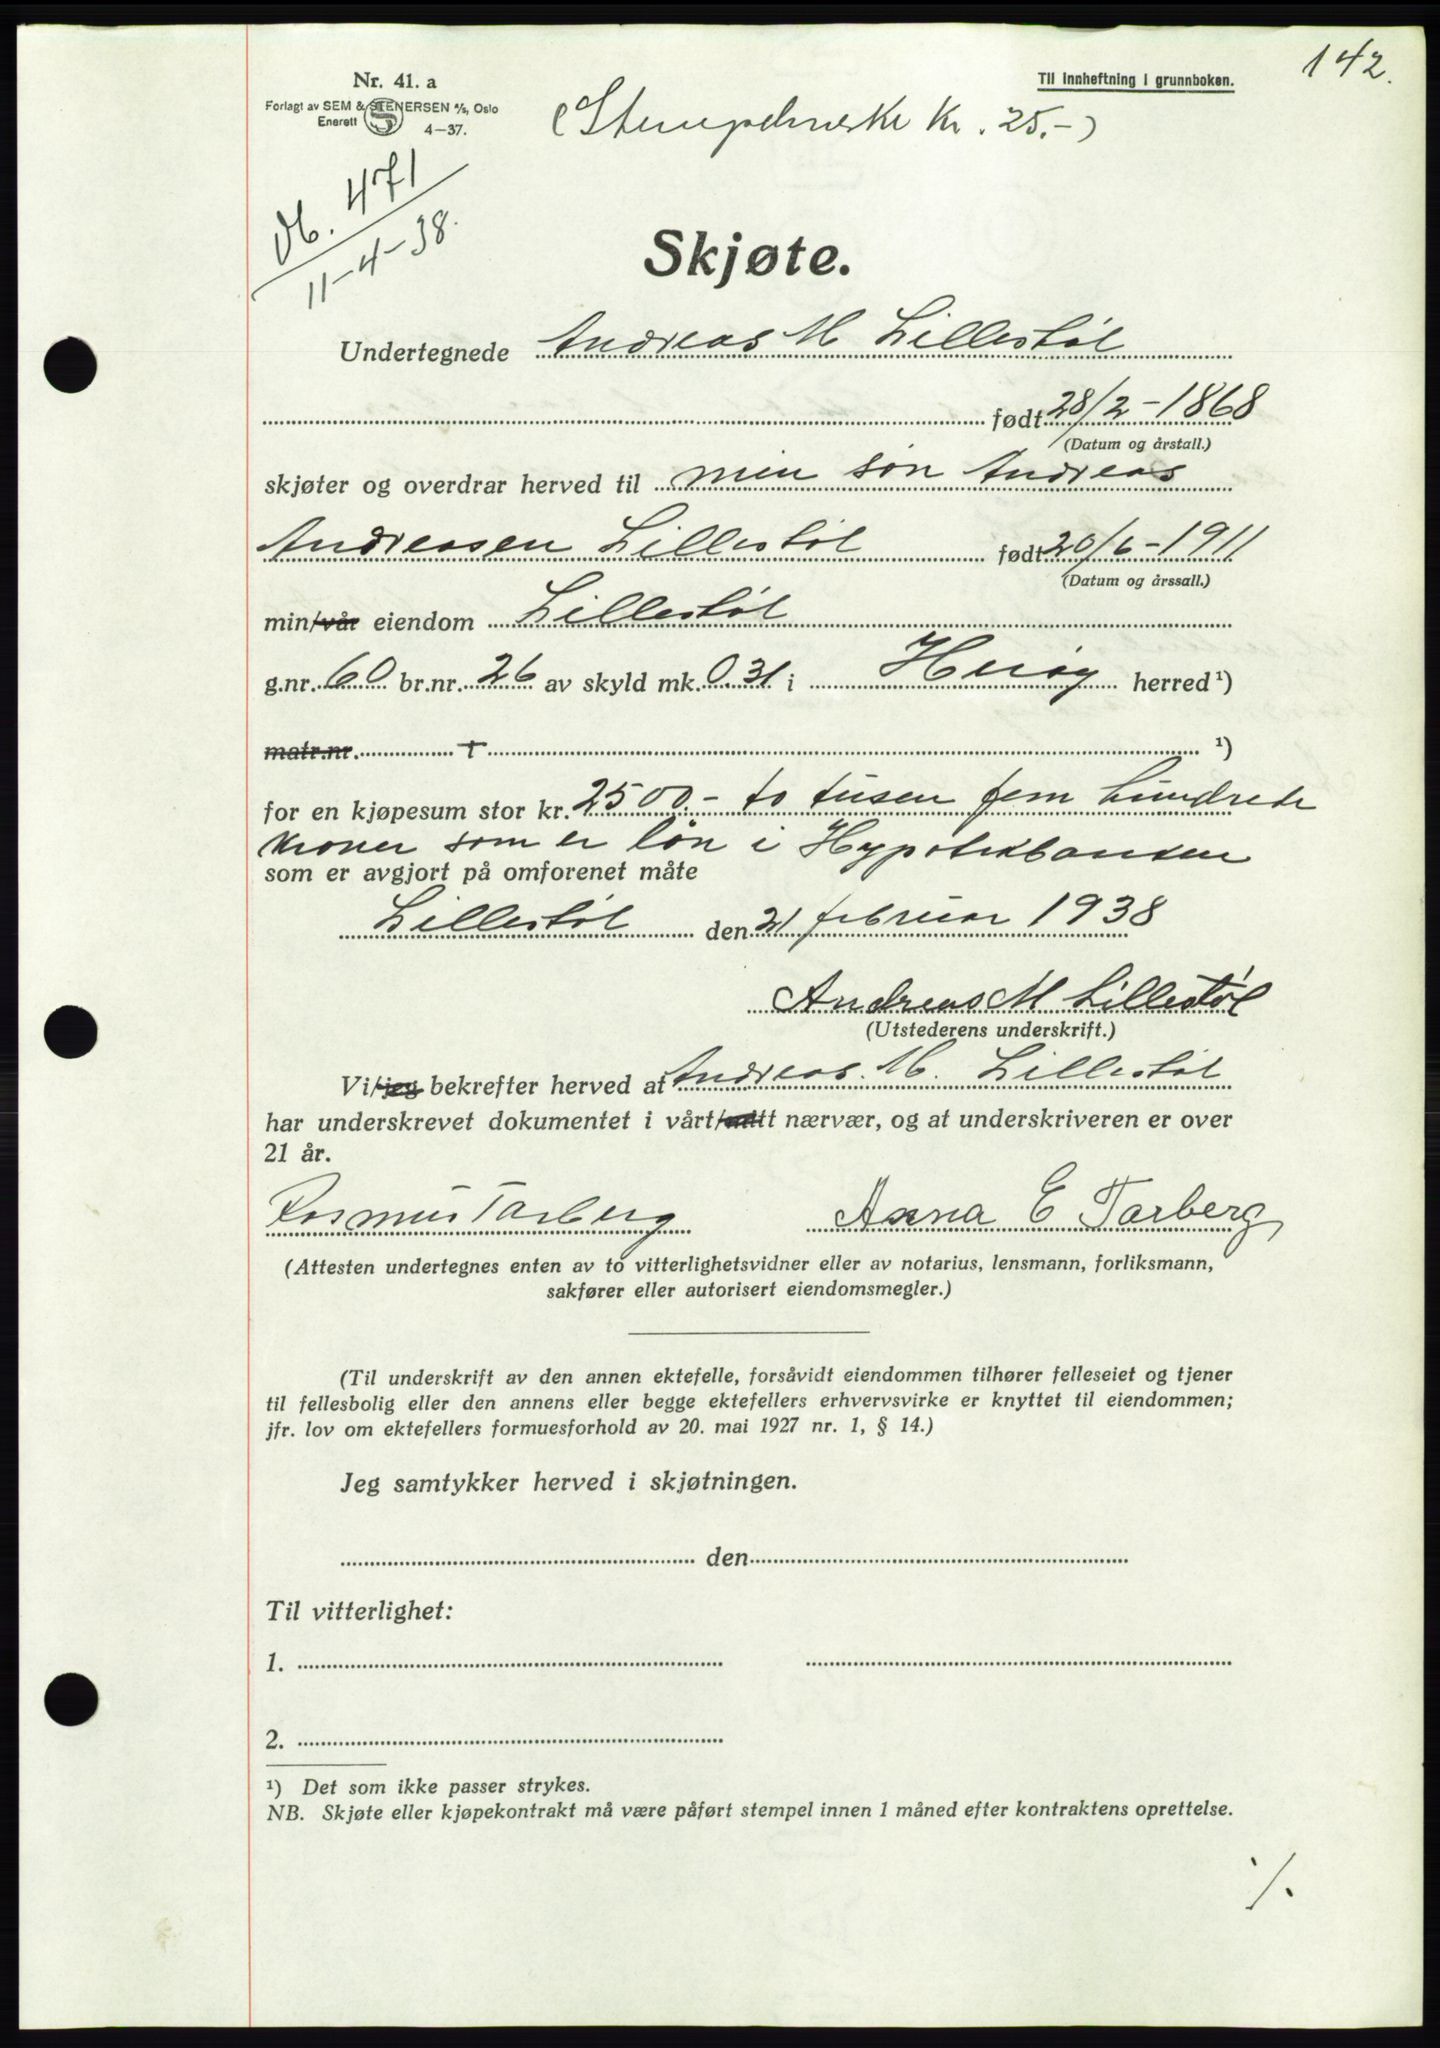 142.
Nr. 41. a
Til innheftning i grunnboken.
Forlagt av SEM & STENERSEN A/S, Oslo
Enerett 4—37.
(Stempelmerke kr. 25.-)
Db. 471
11-4-38.
Skjøte.
Undertegnede Andreas M Lillestøl
født 28/2-1868
(Datum og årstall.)
skjøter og overdrar herved til min søn Andreas
Andreassen Lillestøl født 20/6-1911
(Datum og årssall.)
min/vår eiendom Lillestøl
g.nr. 60 br.nr. 26 av skyld mk. 0.31 i Herøy herred ¹)
matr.nr. ¹)
for en kjøpesum stor kr. 2500.- to tusen fem hundrede
kroner som er lån i Hypotekbanken
som er avgjort på omforenet måte
Lillestøl den 21 februar 1938
Andreas M Lillestøl
(Utstederens underskrift.)
Vi/jeg bekrefter herved at Andreas. M. Lillestøl
har underskrevet dokumentet i vårt/mitt nærvær, og at underskriveren er over
21 år.
Rasmus Tarberg Anna E Tarberg
(Attesten undertegnes enten av to vitterlighetsvidner eller av notarius, lensmann, forliksmann,
sakfører eller autorisert eiendomsmegler.)
(Til underskrift av den annen ektefelle, forsåvidt eiendommen tilhører felleseiet og tjener
til fellesbolig eller den annens eller begge ektefellers erhvervsvirke er knyttet til eiendommen;
jfr. lov om ektefellers formuesforhold av 20. mai 1927 nr. 1, § 14.)
Jeg samtykker herved i skjøtningen.
den
Til vitterlighet:
1.
2.
¹) Det som ikke passer strykes.
NB. Skjøte eller kjøpekontrakt må være påført stempel innen 1 måned efter kontraktens oprettelse.
./.